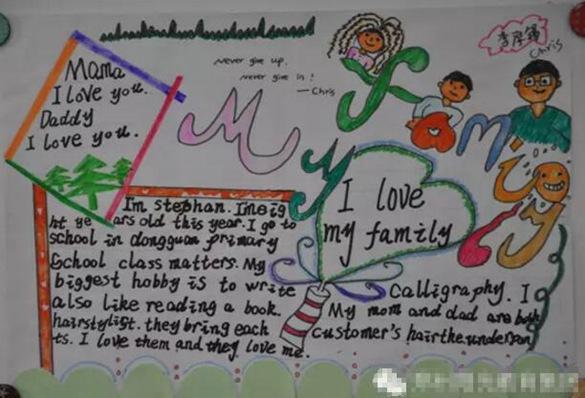 Mama
I love you.
Daddy
I love you.
Never give up.
Never give in!
—Chris
My family
Chris
I love
my family
Im stephan. Imeig
ht ye ars old this year. I go to
school in dongguan primary
school class matters. My
biggest hobby is to write
also like reading a book.
hairstylist. they bring each
ts. I love them and they love me.
Calligraphy. I
My mom and dad are both
customer's hair the underson